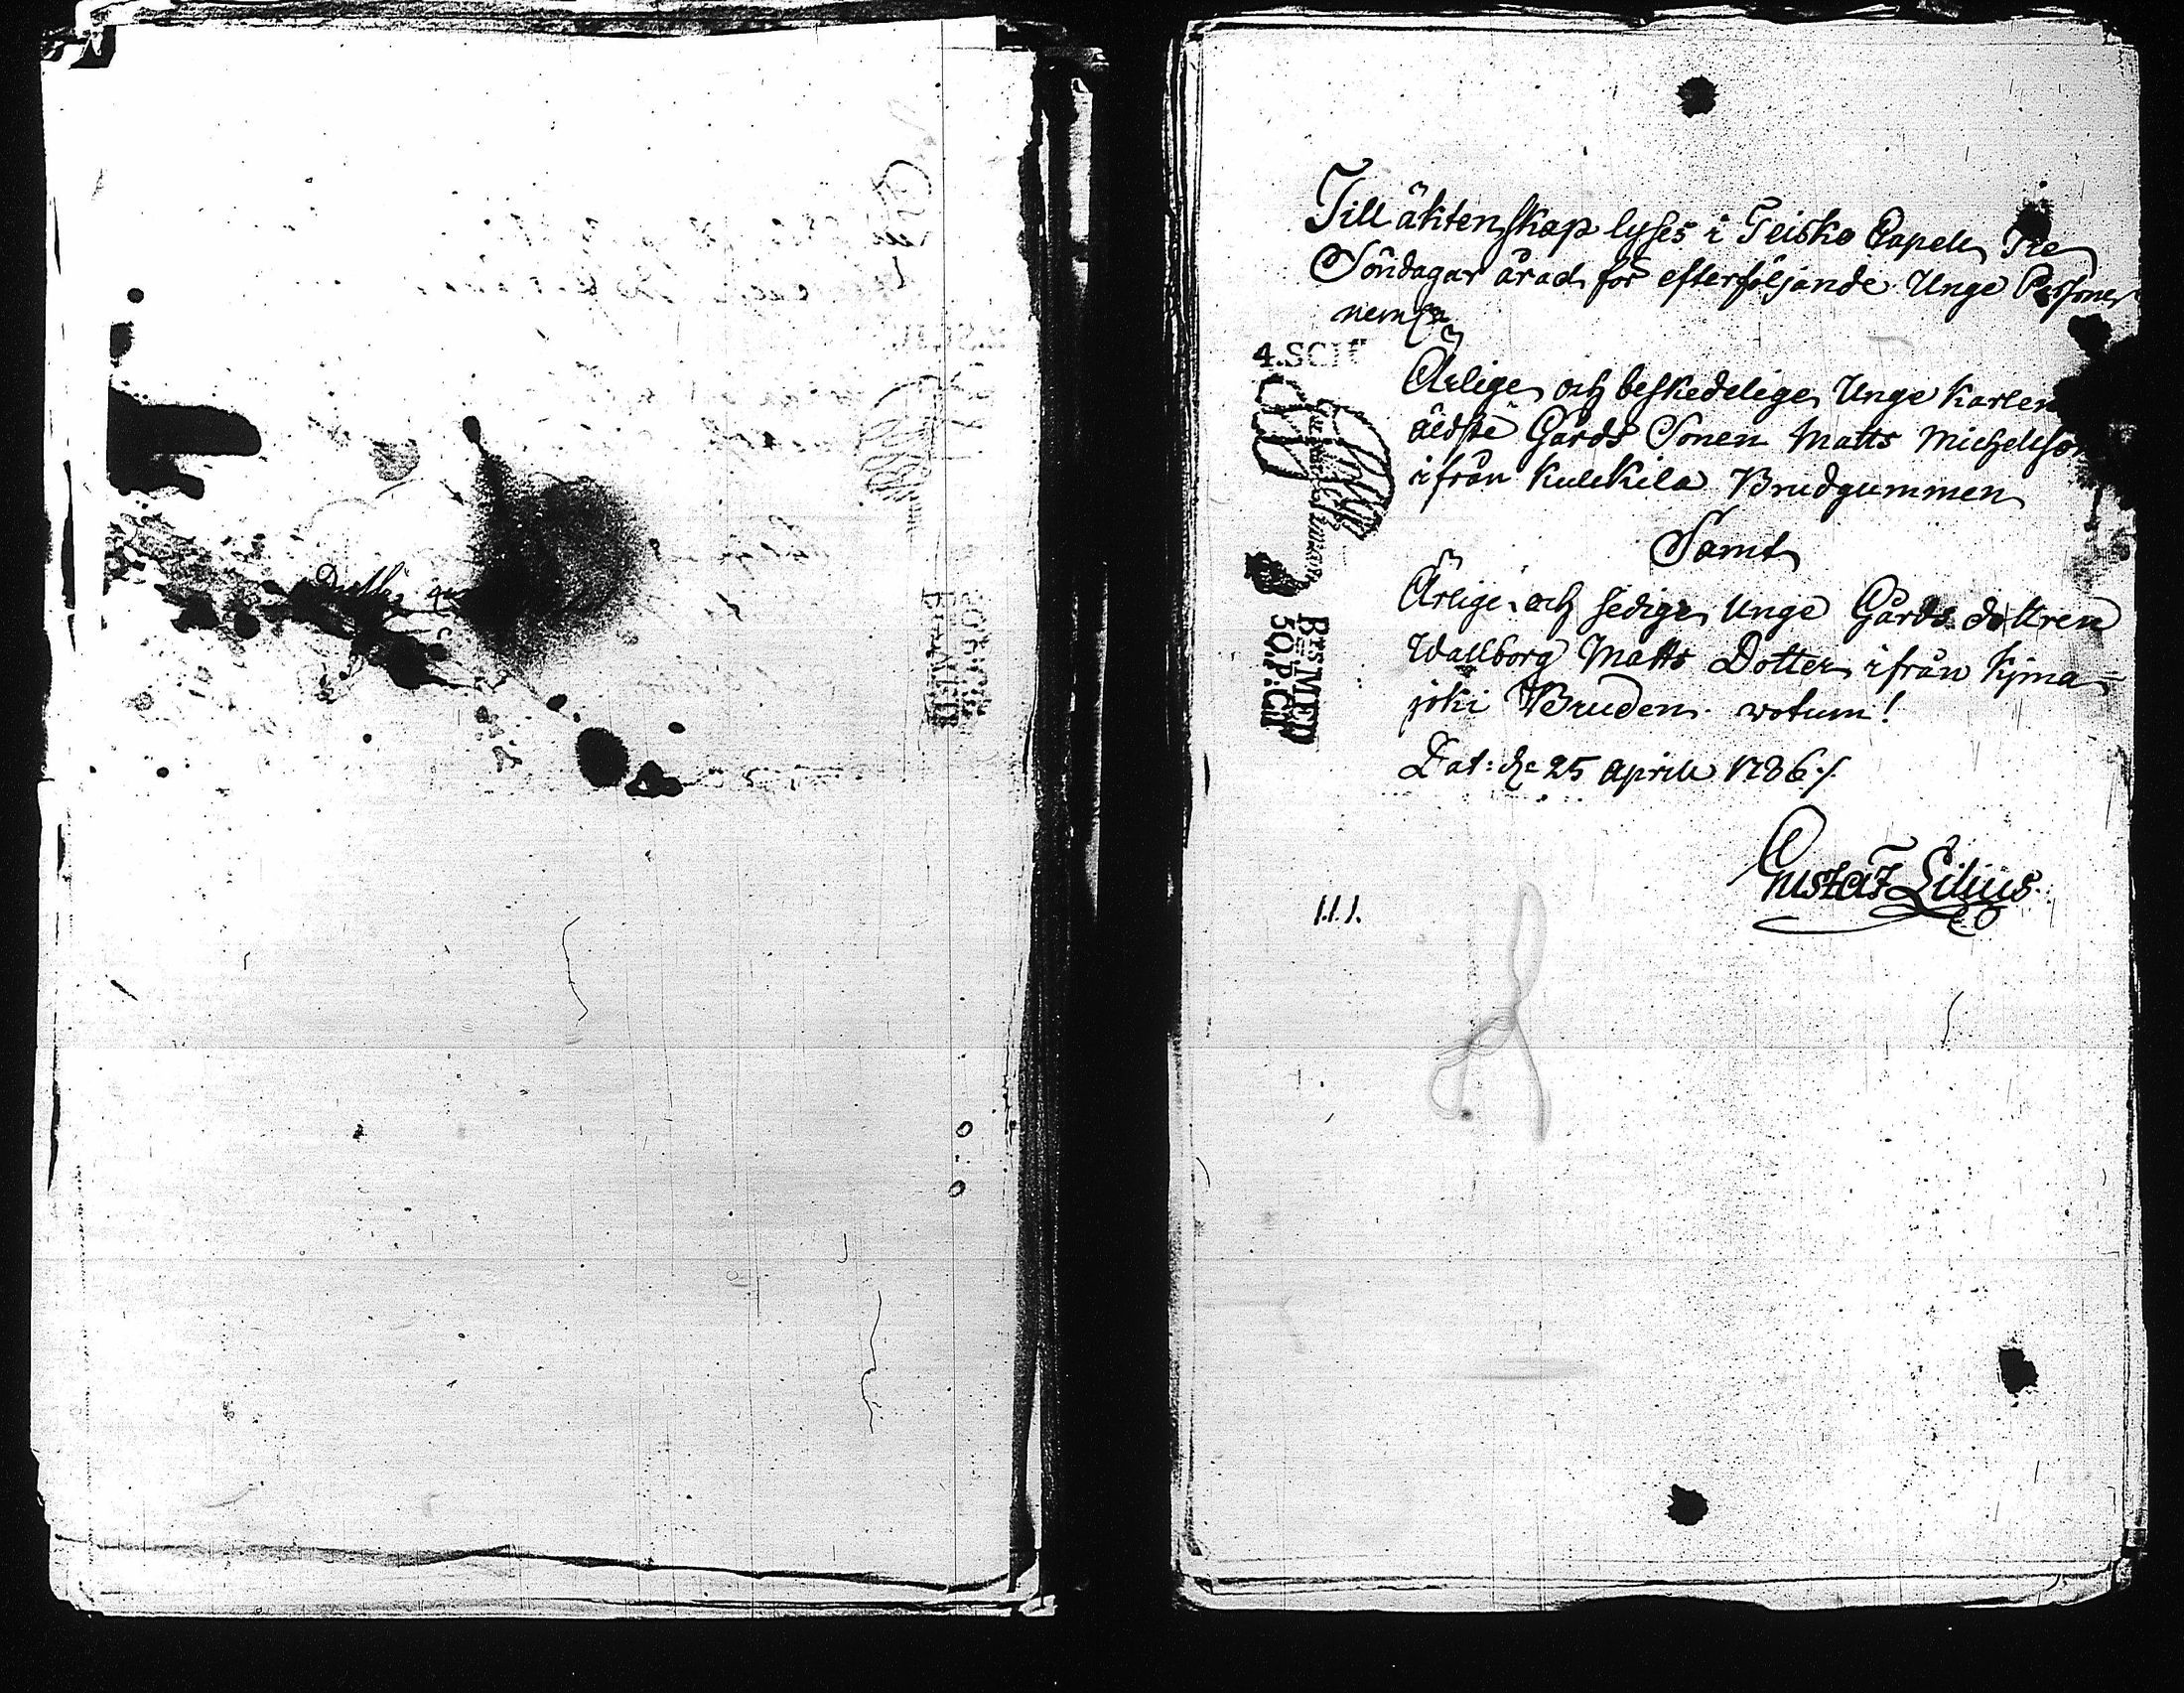 Till äktenskap lyses i Teisko Capell Tre
Söndagar å rad för efterföljande Unge Personer
nemln
4.SCH
Ärlige och beskedelige Unge Karlen
äldste Gårds Sonen Matts Michellson
ifrån Kulkila Brudgummen
Samt
Ärlige och sediga Unge Gårds dottren
Wallborg Matts Dotter ifrån Kjma-
joki Bruden. wotum!
Dat: d: 25 Aprill 1786 ./.
BEST MED
50.P:CT
Gustaf Lilius.
1.1.1.